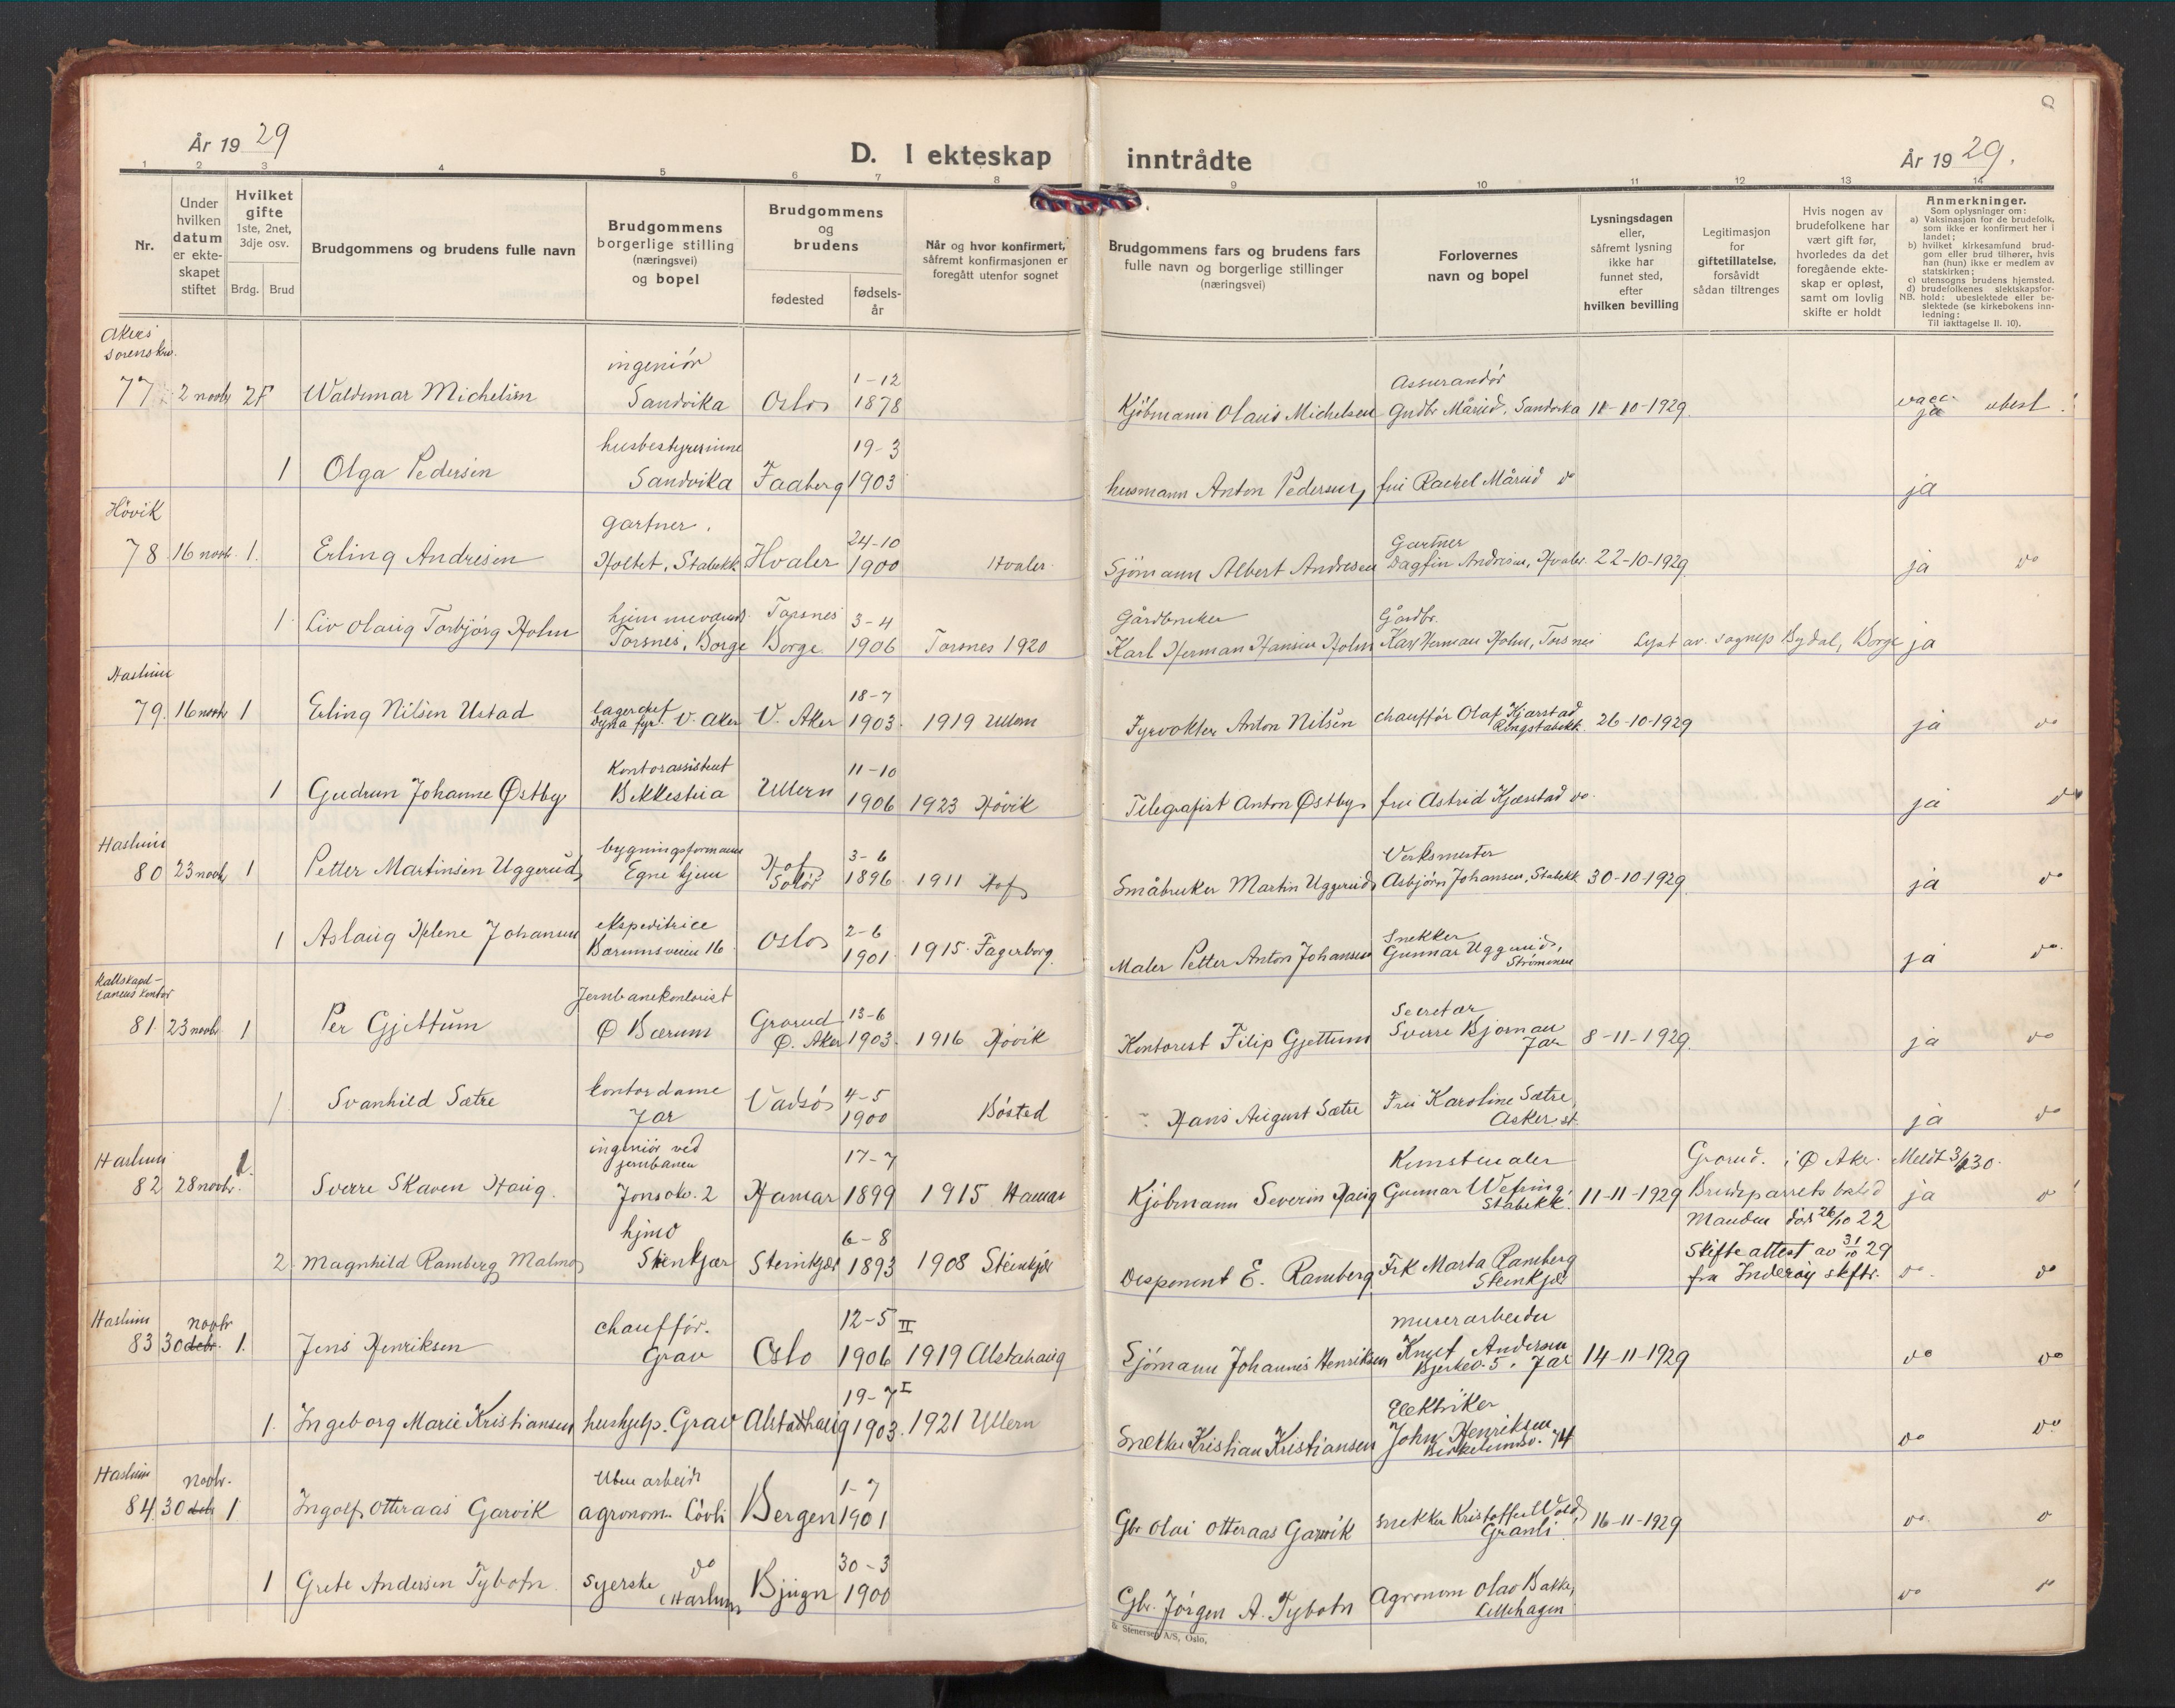 År 1929
D. I ekteskap inntrådte
År 1929.
1 2 3 4 5 6 7 8 9 10 11 12 13 14
Nr.
Under hvilken datum er ekteskapet stiftet
Hvilket gifte 1ste, 2net, 3dje osv.
Brdg. Brud
Brudgommens og brudens fulle navn
Brudgommens borgerlige stilling (næringsvei) og bopel
Brudgommens og brudens
fødested
fødselsår
Når og hvor konfirmert, såfremt konfirmasjonen er foregått utenfor sognet
Brudgommens fars og brudens fars fulle navn og borgerlige stillinger (næringsvei)
Forlovernes navn og bopel
Lysningsdagen eller, såfremt lysning ikke har funnet sted, efter hvilken bevilling
Legitimasjon for giftetillatelse, forsåvidt sådan tiltrenges
Hvis nogen av brudefolkene har vært gift før, hvorledes da det foregående ekteskap er opløst, samt om lovlig skifte er holdt
Anmerkninger.
Som oplysninger om:
a) Vaksinasjon for de brudefolk, som ikke er konfirmert her i landet;
b) hvilket kirkesamfund brudgom eller brud tilhører, hvis han (hun) ikke er medlem av statskirken;
c) utensogns brudens hjemsted.
d) brudefolkenes slektskapsforhold: ubeslektede eller beslektede (se kirkebokens innledning:
NB.
Til iakttagelse II. 10).
Akers sorenskr.
77 2 novbr 2F Waldemar Michelsen ingeniør Sandvika Oslo 1-12 1878 Kjøbmann Olaus Michelsen Assurandør Gudbr Mårud, Sandvika 11-10-1929 vacc. ja ubesl.
1 Olga Pedersen husbestyrerinne Sandvika Faaberg 19-3 1903 husmann Anton Pedersen, fru Rachel Mårud do ja
Høvik
78 16 novbr. 1. Erling Andresen gartner. Holtet, Stabekk Hvaler 24-10 1900 Hvaler. Sjømann Albert Andresen Gartner Dagfin Andresen, Hvaler. 22-10-1929 ja do
1 Liv Olaug Torbjørg Holm hjemmeværende Torsnes, Borge Torsnes Borge 3-4 1906 Torsnes 1920 Gårdbruker Karl Herman Hansen Holm Gårdbr. Karl Herman Holm, Torsnes Lyst av. sognepr Bydal, Borge ja
Haslum
79. 16 novbr 1 Erling Nilsen Ustad lagerchef Dyna fyr. V. Aker V. Aker 18-7 1903. 1919 Ullern Fyrvokter Anton Nilsen chauffør Olaf Kjærstad Ringstabekk 26-10-1929 ja do
1 Gudrun Johanne Østby Kontorassistent Bekkestua Ullern 11-10 1906 1923 Høvik Telegrafist Anton Østby, fru Astrid Kjærstad do. ja do
Haslum
80 23 novbr 1 Petter Martinsen Uggerud bygningsformann Egne hjem Hof Solør 3-6 1896 1911 Hof Småbruker Martin Uggerud Verksmester Asbjørn Johansen, Stabekk 30-10-1929 ja do
1 Aslaug Helene Johansen ekspeditrice Bærumsveien 16 Oslo 2-6 1901 1915 Fagerborg. Maler Petter Anton Johansen Snekker Gunnar Uggerud, Strømmen ja do
Rallskapel-lanens kontor
81. 23 novbr. 1 Per Gjettum Jernbanekontorist Ø Bærum Grorud Ø. Aker 13-6 1903. 1916 Høvik Kontorist Filip Gjettum Secretær Sverre Bjørnau Jar 8-11-1929. ja do
1 Svanhild Sætre kontordame Jar Vadsø 4-5 1900 Bøsted Hans August Sætre Fru Karoline Sætre, Asker st. ja do
Haslum
82 28 novbr. 1. Sverre Skaven Haug. ingeniør ved jernbanen Jonsokv. 2 Hamar 17-7 1899 1915 Hamar Kjøbmann Severin Haug Kunstmaler Gunnar Wefring, Stabekk. 11-11-1929 Grorud. i Ø Aker. Brudeparrets bosted Meldt 3/1 30. ja do
2. Magnhild Ramberg Malmo hjmv Stenkjær Steinkjær 6-8 1893 1908 Steinkjær Disponent E. Ramberg Frk Marta Ramberg Steinkjær Mannen død 26/10 22 Skifteattest av 31/10 29 fra Inderøy skftr. do. do
Haslum
83 30 novbr debr. 1. Jens Henriksen chauffør. Grav Oslo 12-5 1906 II 1919 Alstahaug Sjømann Johannes Henriksen murerarbeider Knut Andersen Bjerkev. 5. Jar 14-11-1929 do do
1. Ingeborg Marie Kristiansen hushjelp. Grav Alstadhaug 19-7 1903. I 1921 Ullern Snekker Kristian Kristiansen Elektriker John Henriksen Birkelundsv. 14 do do
Haslum
84. 30 novbr. debr 1 Ingolf Otteraas Garvik Uten arbeide agronom. Løvli Bergen 1-7 1901 Gbr Olai Otteraas Garvik snekker Kristoffer Wold, Granli 16-11-1929 do. do
1 Grete Andersen Tybotn. syerske do Haslum Bjugn 30-3 1900 Gbr. Jørgen A. Tybotn Agronom Olav Bakke, Lillehagen do do
Stenersen A/S, Oslo,